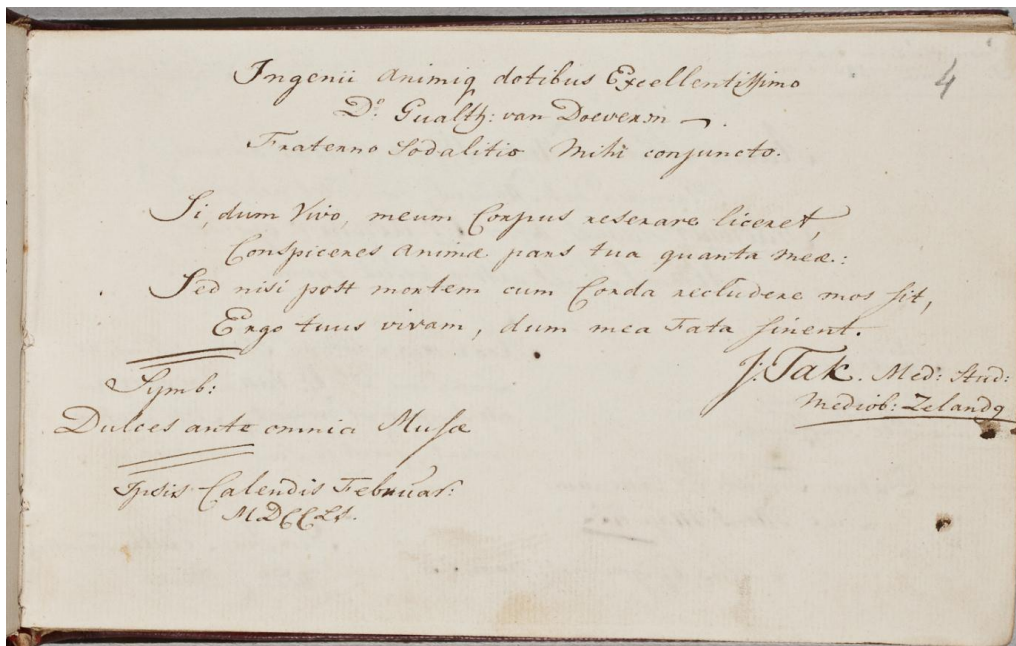 4
Ingenii animiq dotibus Excellentissimo
Do. Gualth: van Doeveren
Fraterno Sodalitio Mihi conjuncto.
Si, dum Vivo, meum Corpus reserare liceret,
Conspiceres animæ pars tua quanta meæ:
Sed nisi post mortem cum Corda recludere mos sit,
Ergo tuus vivam, dum mea Fata sinent.
J: Tak. Med: Stud:
Mediob: Zelandq
Symb:
Dulces ante omnia Musæ
Ipsis Calendis Februar: